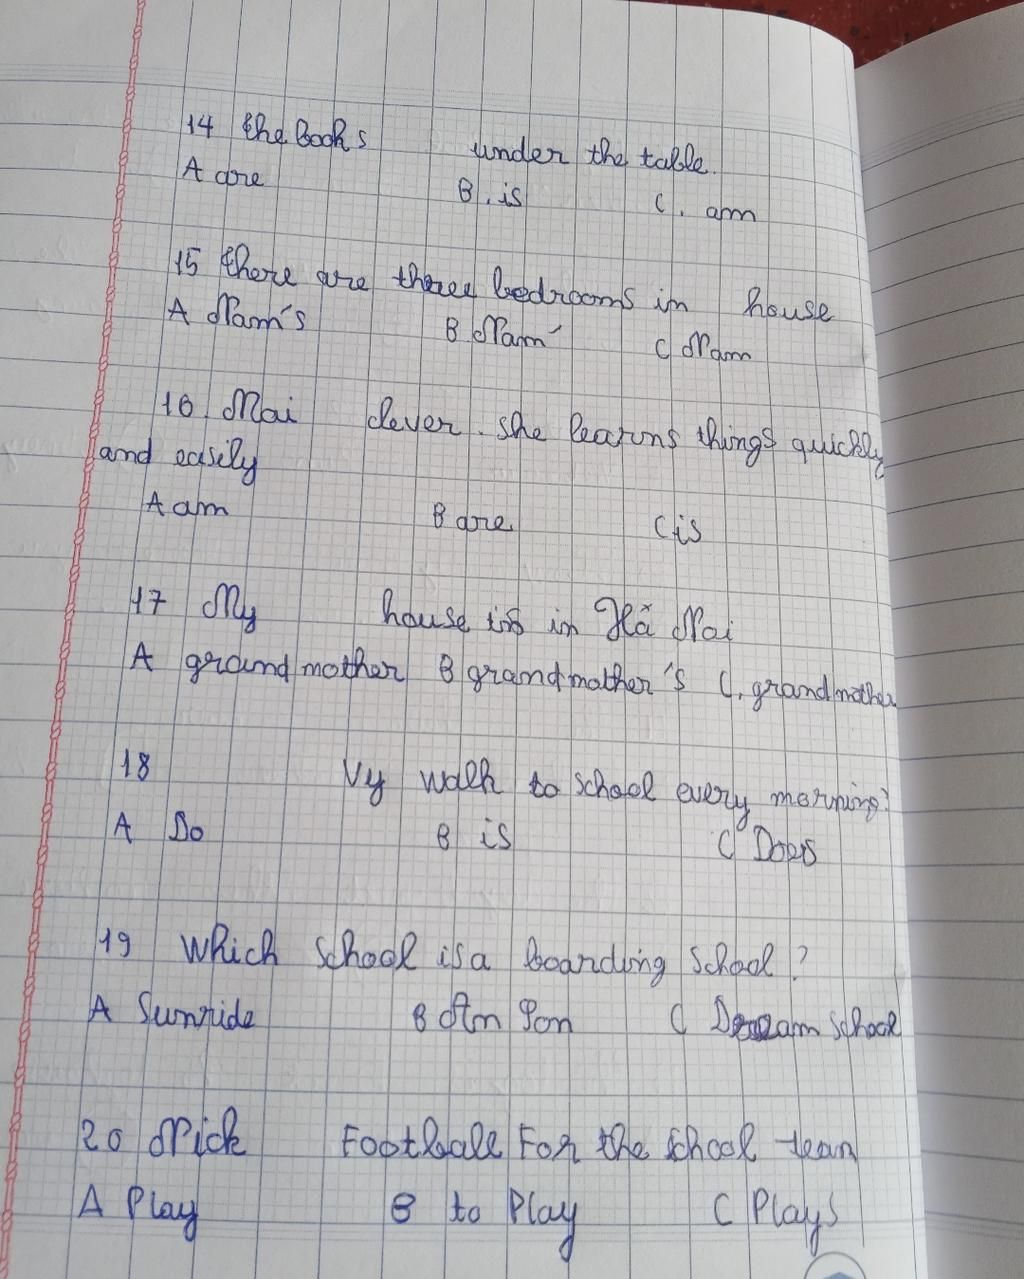 14 the books under the table.
A are B. is C. am
15 there are three bedrooms in house
A Nam's B Nam' C Nam
16 Mai clever. she learns things quickly
and easily
A am B are C is
17 My house is in Hà Noi
A grandmother B grandmother's C. grandmother
18 Vy walk to school every morning?
A Do B is C Does
19 Which school is a boarding school?
A Sunride B An Son C Dream school
20 Nick Football For the school team
A Play B to Play C Plays